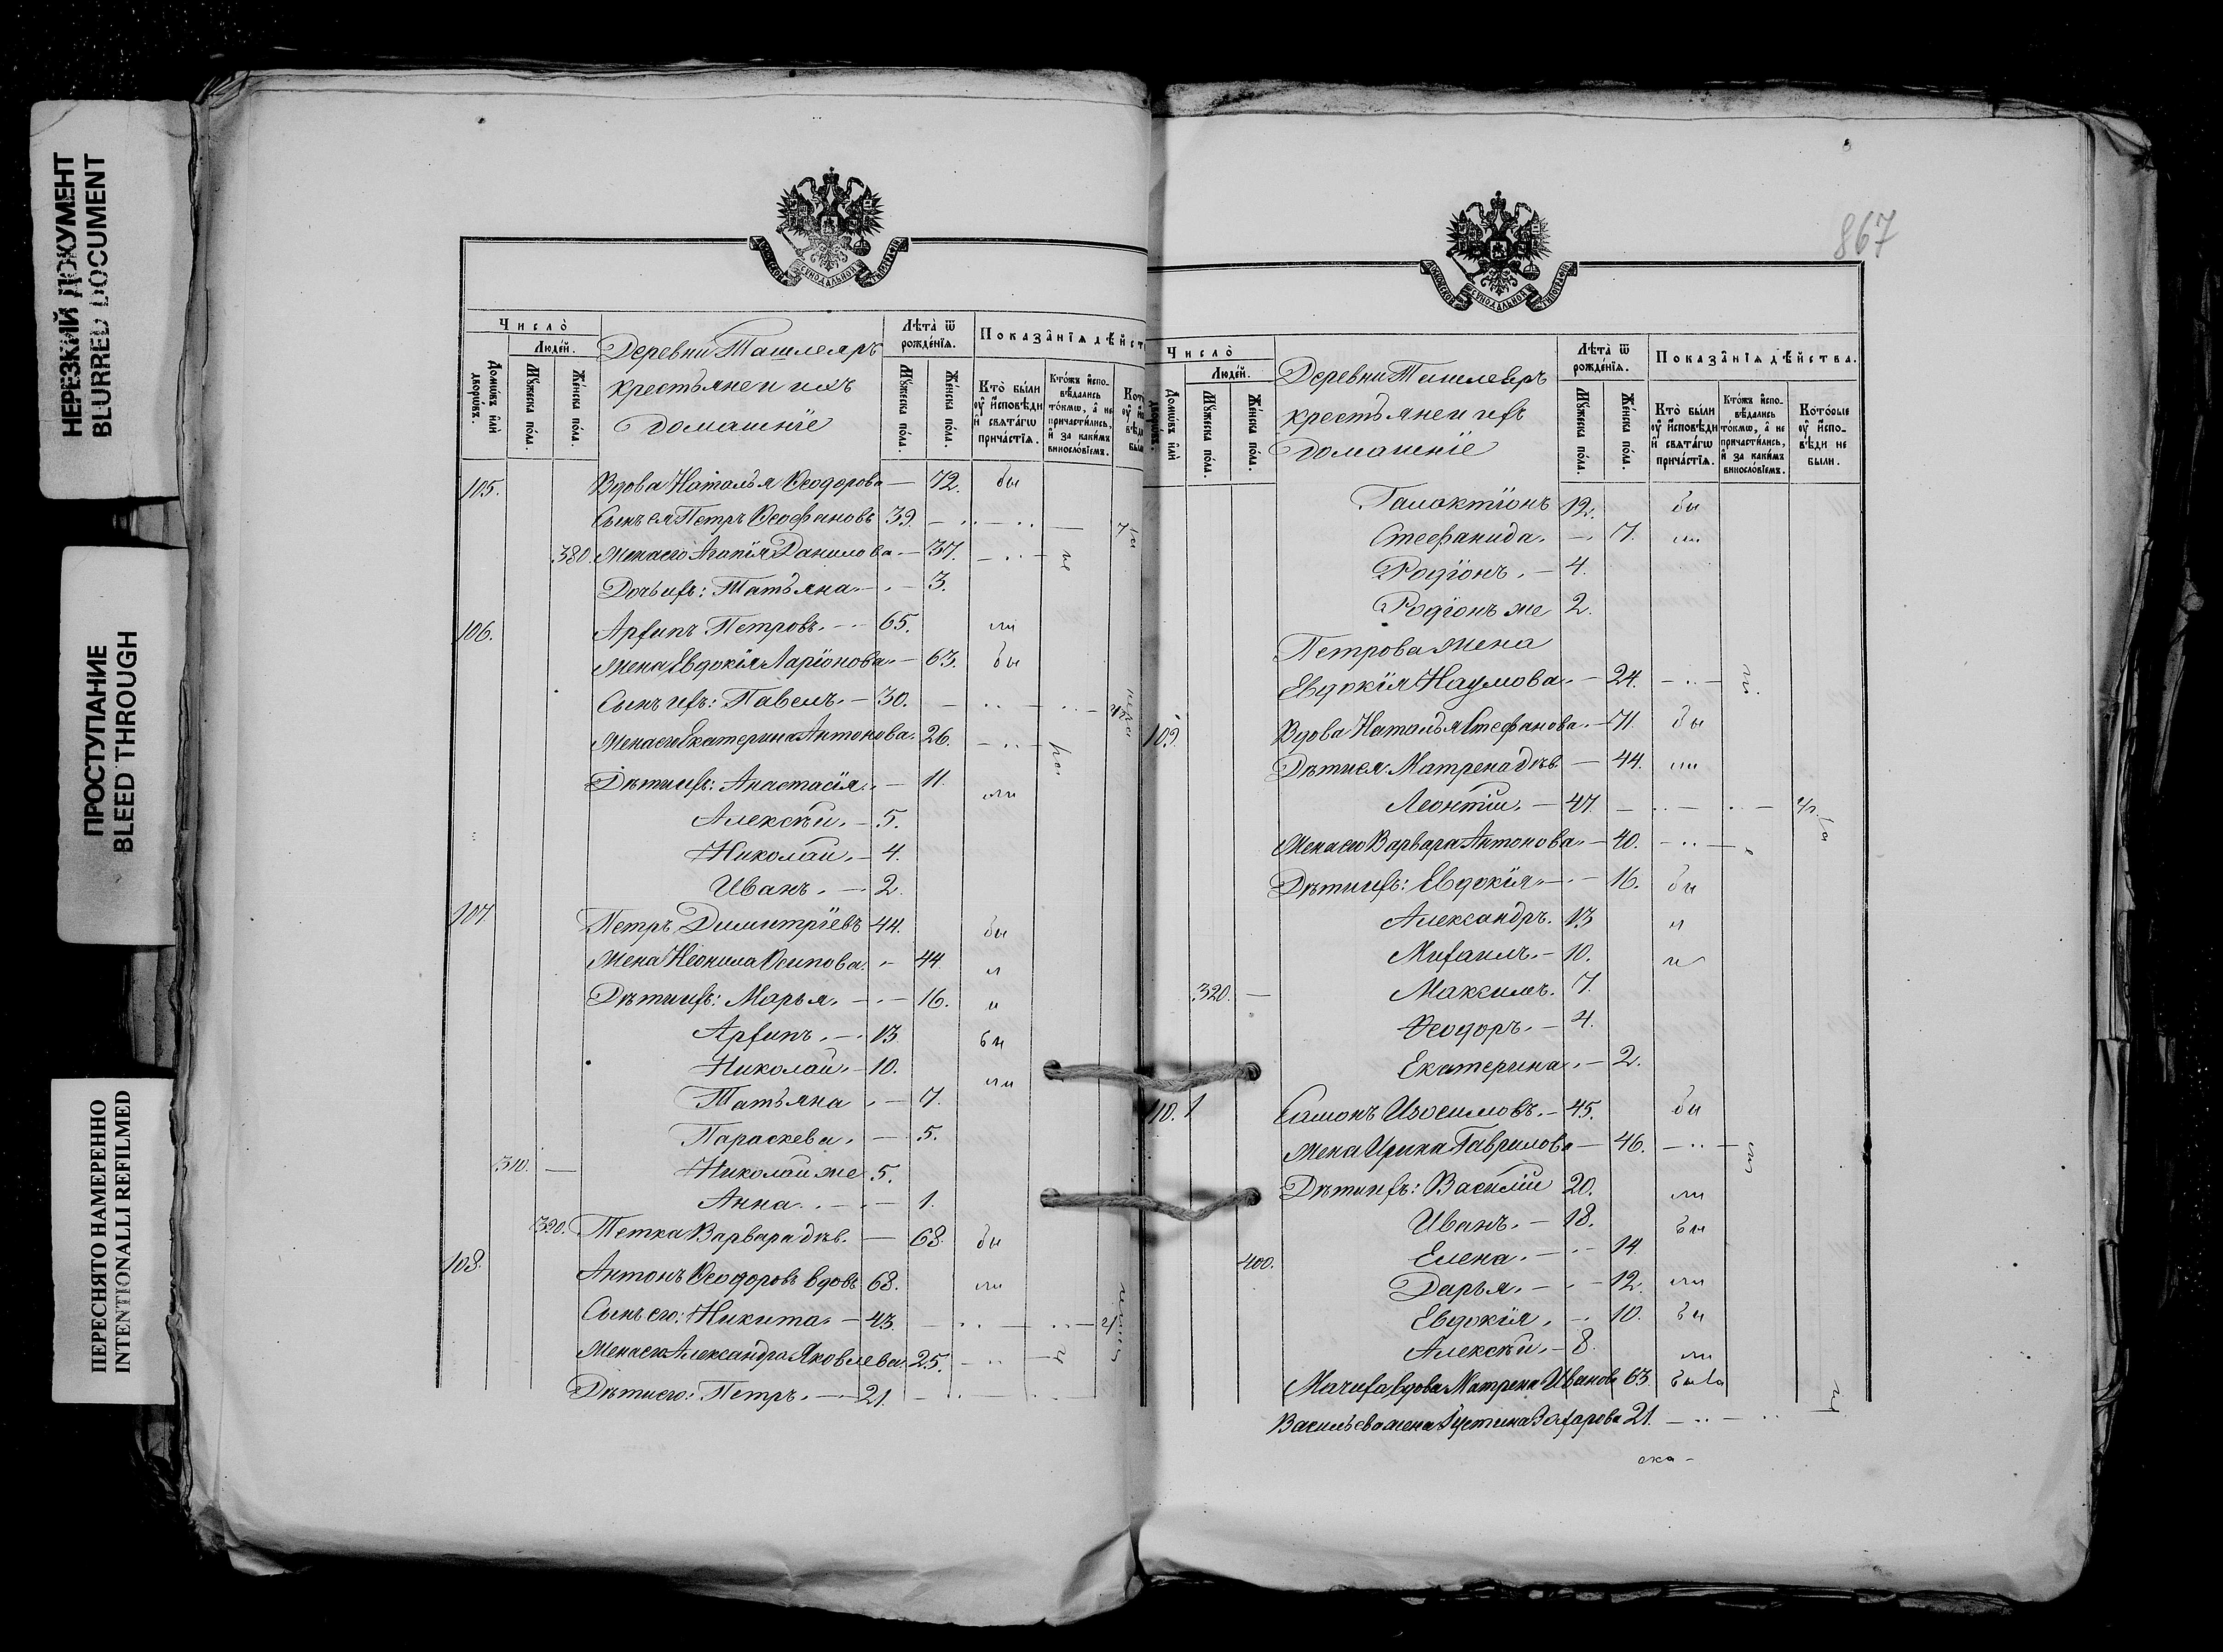 НЕРЕЗКИЙ ДОКУМЕНТ
BLURRED DOCUMENT
ПРОСТУПАНИЕ
BLEED THROUGH
ПЕРЕСНЯТО НАМЕРЕННО
INTENTIONALLI REFILMED
МОСКОВСКОЙ СѴНОДАЛЬНОЙ ТИПОГРАФІИ
Число̀
Людей.
Домѡвъ и҆лѝ дворѡвъ.
Мꙋжеска по́ла.
Же́нска по́ла.
Деревни Ташлеяръ
крестьяне и ихъ
домашніе
Лѣта̀ ѿ рожде́нїѧ.
Мꙋжеска по́ла.
Же́нска по́ла.
Показа̑нїѧ дѣ́йст
Кто̀ бы́ли оу҆ и҆сповѣди и҆ свѧта́гѡ прича́стїѧ.
Кто́жъ и҆спо-вѣдались то́кмѡ, а҆ не причасти́лись, и҆ за каки́мъ винослові́емъ.
105. Вдова Наталья Ѳеодорова — 72. бы
Сынъ ея Петръ Ѳеофановъ 39.
380. Жена его Агапія Данилова — 37.
Дочь ихъ: Татьяна — 3.
106. Архипъ Петровъ. — 65. ли
Жена Евдокія Ларіонова — 63. бы
Сынъ ихъ: Павелъ. — 30.
Жена его Екатерина Антонова. 26.
Дѣти ихъ: Анастасія. — 11. ли
Алексѣй. — 5.
Николай. — 4.
Иванъ. — 2.
107 Петръ Димитріевъ 44. бы
Жена Неонила Осипова. — 44.
Дѣти ихъ: Марья. — 16. и
Архипъ. — 13. бы
Николай. — 10. ли
Татьяна — 7.
Параскева. — 5.
310. — Николай же 5.
Анна. — 1.
390. Тетка Варвара дѣв. — 68. бы
108. Антонъ Ѳеодоровъ вдовъ 68. ли
Сынъ его: Никита. — 43.
Жена его Александра Яковлева. 25.
Дѣти его: Петръ. — 21.
867
МОСКОВСКОЙ СѴНОДАЛЬНОЙ ТИПОГРАФІИ
Число̀
Людей.
Домѡвъ и҆лѝ дворѡвъ.
Мꙋжеска по́ла.
Же́нска по́ла.
Деревни Ташлеяръ
крестьяне и ихъ
домашніе
Лѣта̀ ѿ рожде́нїѧ.
Мꙋжеска по́ла.
Же́нска по́ла.
Показа̑нїѧ дѣ́йства.
Кто̀ бы́ли оу҆ и҆сповѣди и҆ свѧта́гѡ прича́стїѧ.
Кто́жъ и҆спо-вѣдались то́кмѡ, а҆ не причасти́лись, и҆ за каки́мъ винослові́емъ.
Кото́рые оу҆ и҆спо-вѣди не были.
Галактіонъ 12. бы
Стефанида. — 7. ли
Родіонъ. — 4.
Родіонъ же 2.
Петрова жена
Евдокія Наумова. — 24.
109. Вдова Наталья Стефанова. — 71. бы
Дѣти ея: Матрена дѣв. — 44. ли
Леонтій. — 47.
Жена его Варвара Антонова. — 40.
Дѣти ихъ: Евдокія. — 16. бы
Александръ. 13
Михаилъ. — 10.
320. — Максимъ. 7.
Ѳеодоръ. — 4.
Екатерина. — 2.
110. Самонъ Изосимовъ. — 45. бы
Жена Ирина Гаврилова — 46.
Дѣти ихъ: Василій 20. ли
Иванъ. — 18. бы
400. Елена. — 14.
Дарья. — 12. ли
Евдокія. — 10. бы
Алексѣй. — 8. ли
Мачиха вдова Матрена Иванов 63. была
Васильева жена Іустина Захарова 21.
ска-